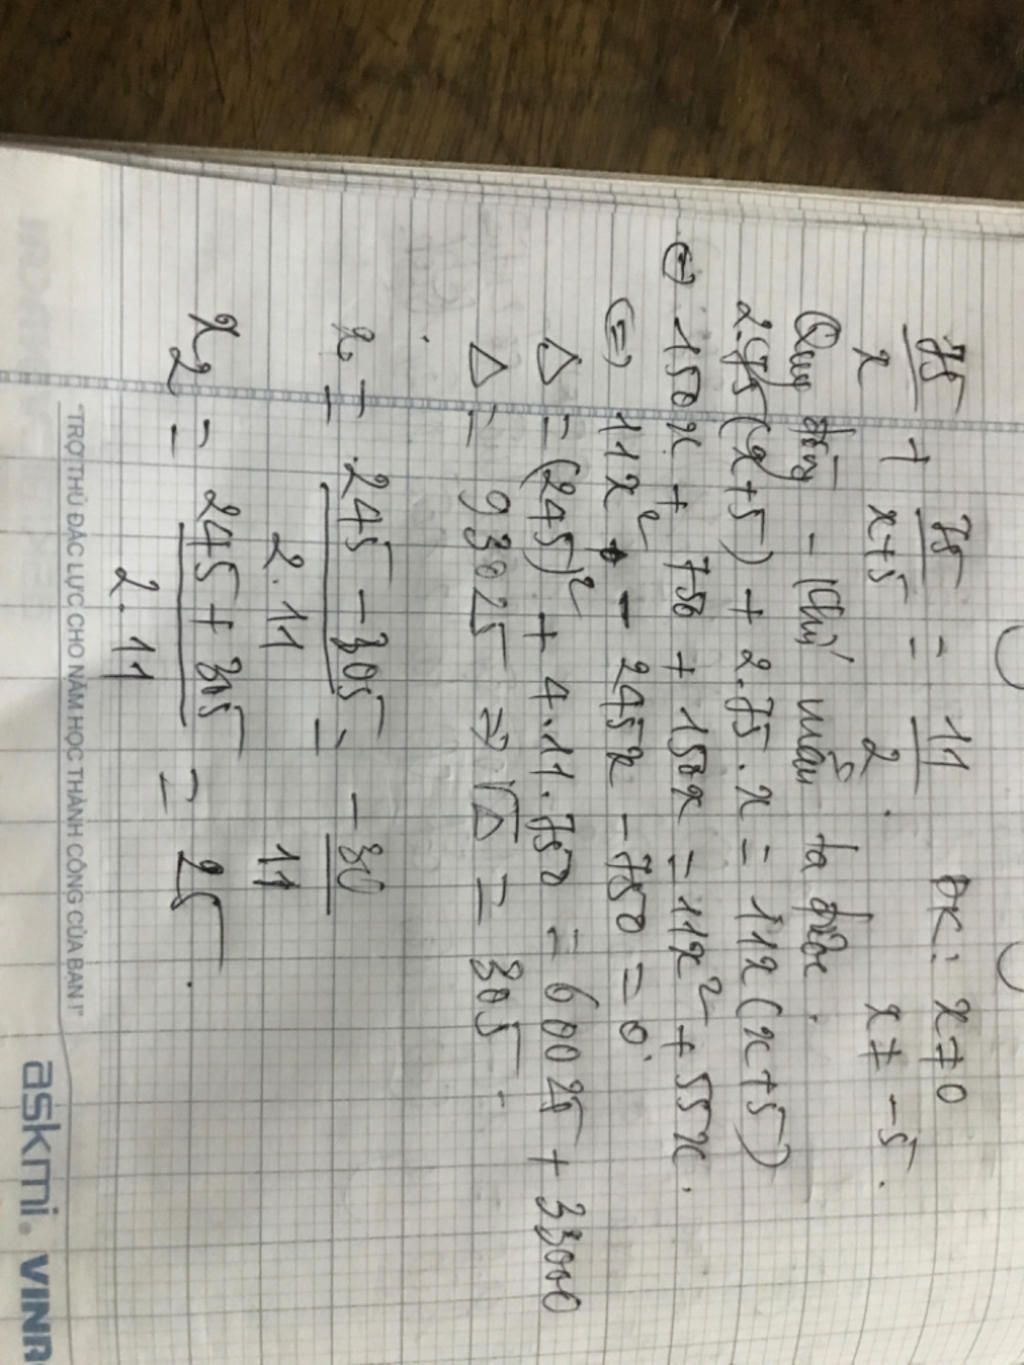 75/x + 75/(x+5) = 11/2 . ĐK: x ≠ 0
x ≠ -5.
Quy đồng - Khử mẫu ta được.
2.75(x+5) + 2.75.x = 11x(x+5)
(=) 150x + 750 + 150x = 11x² + 55x.
(=) 11x² - 245x - 750 = 0.
Δ = (245)² + 4.11.750 = 60025 + 33000
Δ = 93025 => √Δ = 305.
x₁ = (245 - 305)/(2.11) = -30/11
x₂ = (245 + 305)/(2.11) = 25.
"TRỢ THỦ ĐẮC LỰC CHO NĂM HỌC THÀNH CÔNG CỦA BẠN !"
askmi.